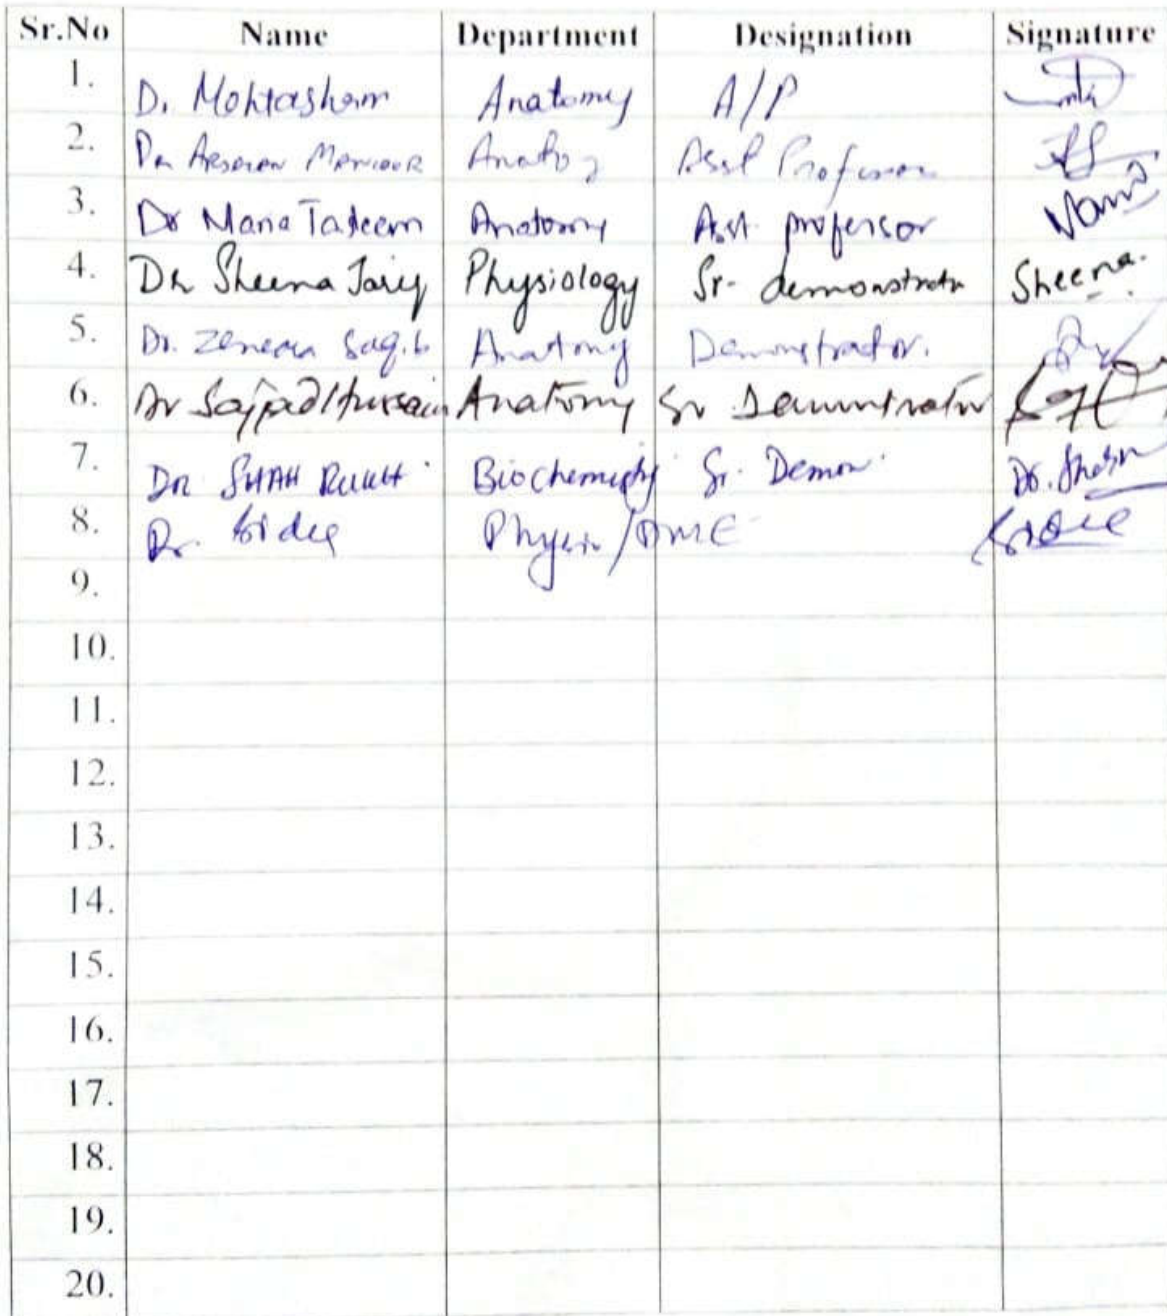 Sr.No Name Department Designation Signature
1. D. Mohtashim Anatomy A/P
2. Dr Arsalan Mansoor Asst Professor
3. Dr Maria Tasleem Anatomy Asst. professor Maria
4. Dr Sheena Tariq Physiology Sr- demonstrator Sheena.
5. Dr. Saqib Anatomy Demonstrator.
6. Dr Sajjad Hussain Anatomy Sr Demonstrator
7. DR SHAH RUKH Biochemistry Sr. Demon.
8. Dr. /DME
9.
10.
11.
12.
13.
14.
15.
16.
17.
18.
19.
20.